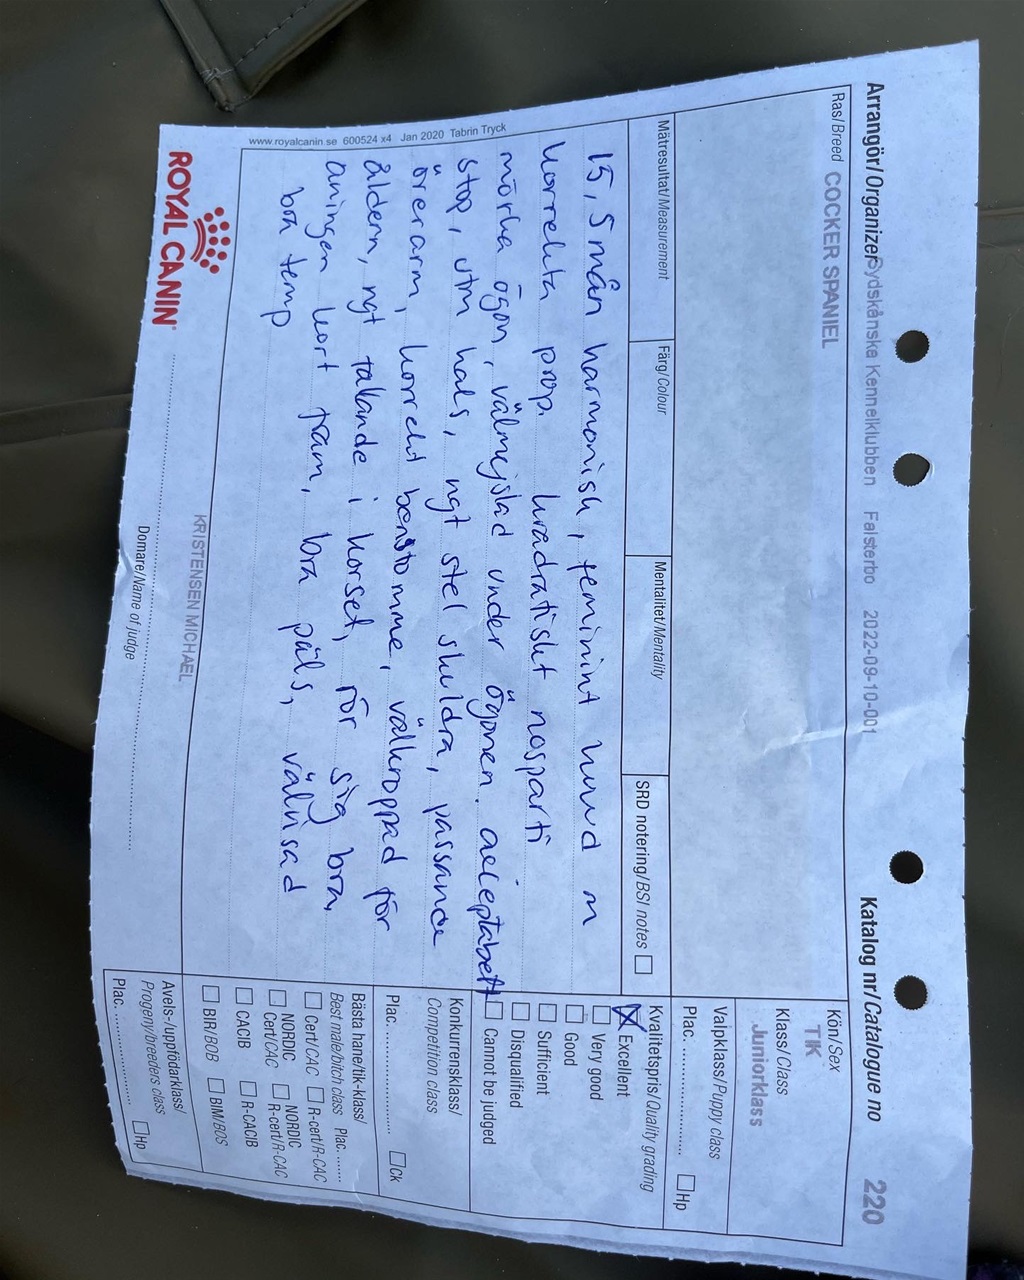 Arrangör/Organizer Sydskånska Kennelklubben Falsterbo 2022-09-10-001 Katalog nr/Catalogue no 220
Ras/Breed COCKER SPANIEL
Kön/Sex
TIK
Klass/Class
Juniorklass
Valpklass/Puppy class
Plac. ................ ☐ Hp
Mätresultat/Measurement
Färg/Colour
Mentalitet/Mentality
SRD notering/BSI notes ☐
15,5 mån harmonisk, feminint huvud m
korrekta prop. kvadratiskt nosparti
mörka ögon, välmejslad under ögonen. acceptabelt
stop, utm hals, ngt stel skuldra, passande
överarm, korrekt benstomme, välkroppad för
åldern, ngt fallande i korset, rör sig bra,
aningen kort fram, bra päls, välvisad
bra temp
Kvalitetspris/Quality grading
☒ Excellent
☐ Very good
☐ Good
☐ Sufficient
☐ Disqualified
☐ Cannot be judged
Konkurrensklass/
Competition class
Plac. ................ ☐ Ck
Bästa hane/tik-klass/
Best male/bitch class Plac. ........
☐ Cert/CAC ☐ R-cert/R-CAC
☐ NORDIC Cert/CAC ☐ NORDIC R-cert/R-CAC
☐ CACIB ☐ R-CACIB
☐ BIR/BOB ☐ BIM/BOS
Avels-/uppfödarklass/
Progeny/breeders class
Plac. ................ ☐ Hp
www.royalcanin.se 600524 x4 Jan 2020 Tabrin Tryck
ROYAL CANIN
KRISTENSEN MICHAEL
Domare/Name of judge